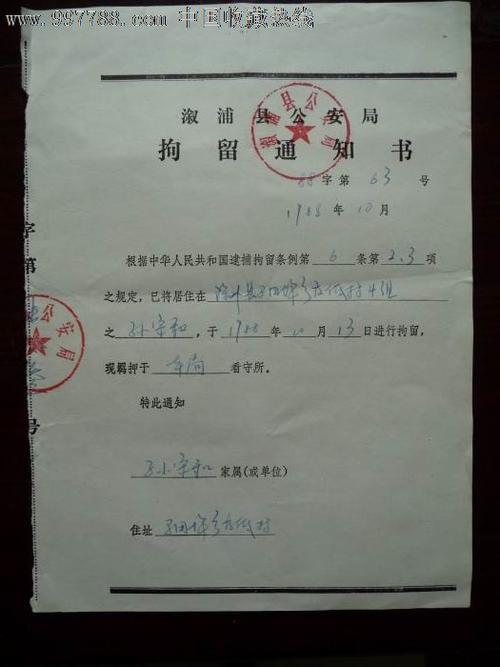 www.997788.com 中国收藏热线
溆浦县公安局
拘留通知书
溆浦县公安局
88字第 63 号
1988 年 10 月
根据中华人民共和国逮捕拘留条例第 6 条第 2.3 项
之规定，已将居住在 村 4组
之 孙宗和 ，于 1988 年 10 月 13 日进行拘留，
现羁押于 本局 看守所。
特此通知
孙宗和 家属（或单位）
住址 村
字第
公安局
号